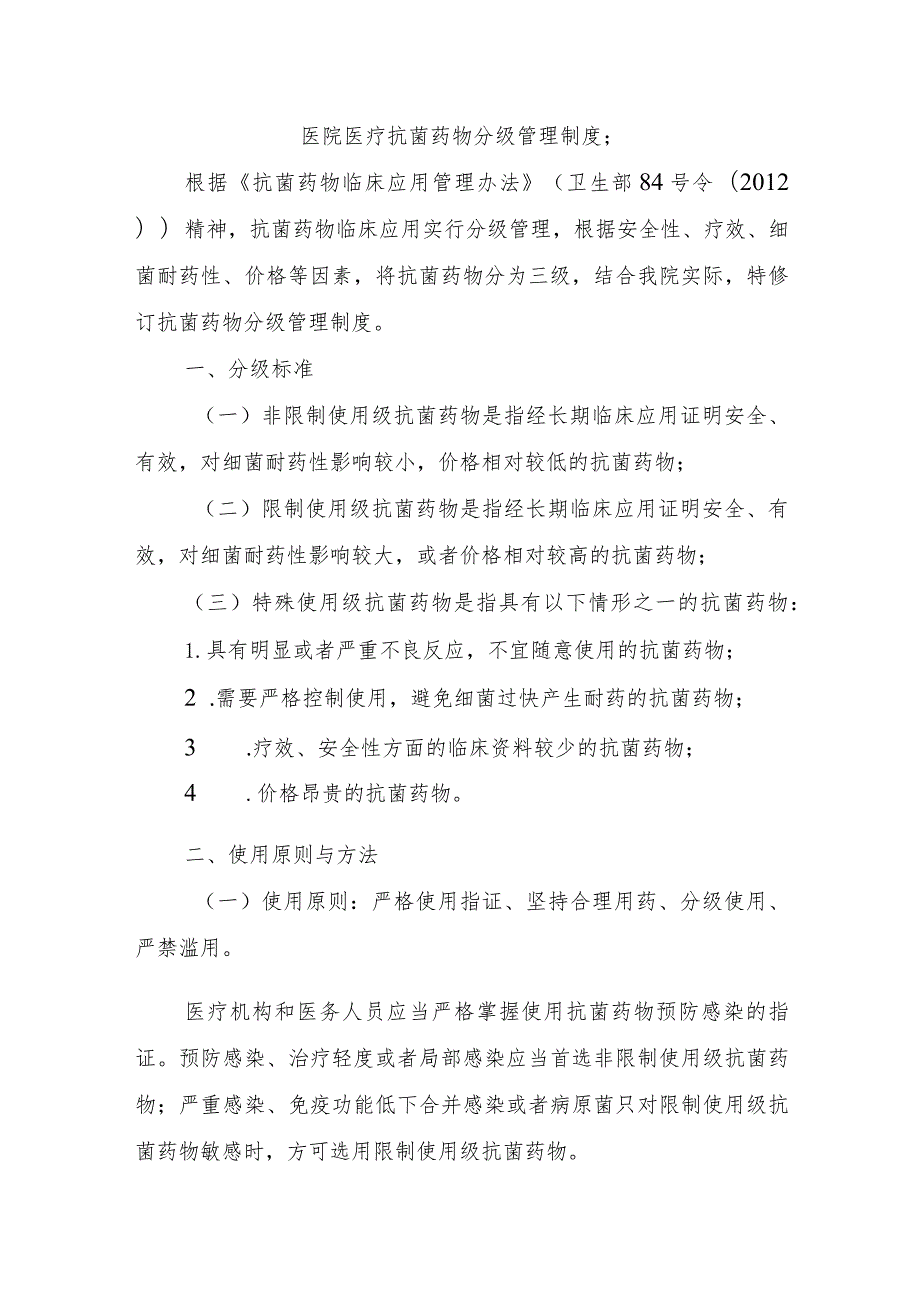 医院医疗抗菌药物分级管理制度；
根据《抗菌药物临床应用管理办法》（卫生部 84 号令（2012
））精神，抗菌药物临床应用实行分级管理，根据安全性、疗效、细
菌耐药性、价格等因素，将抗菌药物分为三级，结合我院实际，特修
订抗菌药物分级管理制度。
一、分级标准
（一）非限制使用级抗菌药物是指经长期临床应用证明安全、
有效，对细菌耐药性影响较小，价格相对较低的抗菌药物；
（二）限制使用级抗菌药物是指经长期临床应用证明安全、有
效，对细菌耐药性影响较大，或者价格相对较高的抗菌药物；
（三）特殊使用级抗菌药物是指具有以下情形之一的抗菌药物：
1. 具有明显或者严重不良反应，不宜随意使用的抗菌药物；
2 .需要严格控制使用，避免细菌过快产生耐药的抗菌药物；
3 .疗效、安全性方面的临床资料较少的抗菌药物；
4 .价格昂贵的抗菌药物。
二、使用原则与方法
（一）使用原则：严格使用指证、坚持合理用药、分级使用、
严禁滥用。
医疗机构和医务人员应当严格掌握使用抗菌药物预防感染的指
证。预防感染、治疗轻度或者局部感染应当首选非限制使用级抗菌药
物；严重感染、免疫功能低下合并感染或者病原菌只对限制使用级抗
菌药物敏感时，方可选用限制使用级抗菌药物。